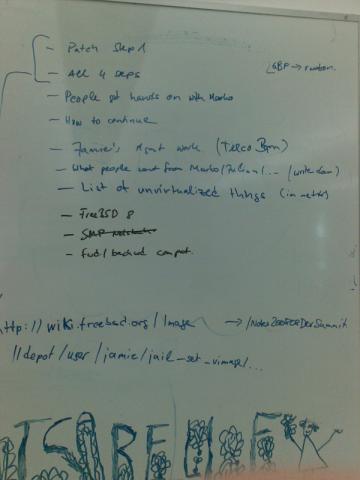 - Patch Step 1
- All 4 steps
- People get hands on with Marko
- How to continue
- Jamie's Mgmt work (Telco 8pm)
- What people want from Marko/Julian/... (write down)
- List of unvirtualized things (in netxx)
- FreeBSD 8
- SMP
- Fwd/backwd compat.
http://wiki.freebsd.org/Image → /Notes200808DevSummit
//depot/user/jamie/jail_set_vimage/...